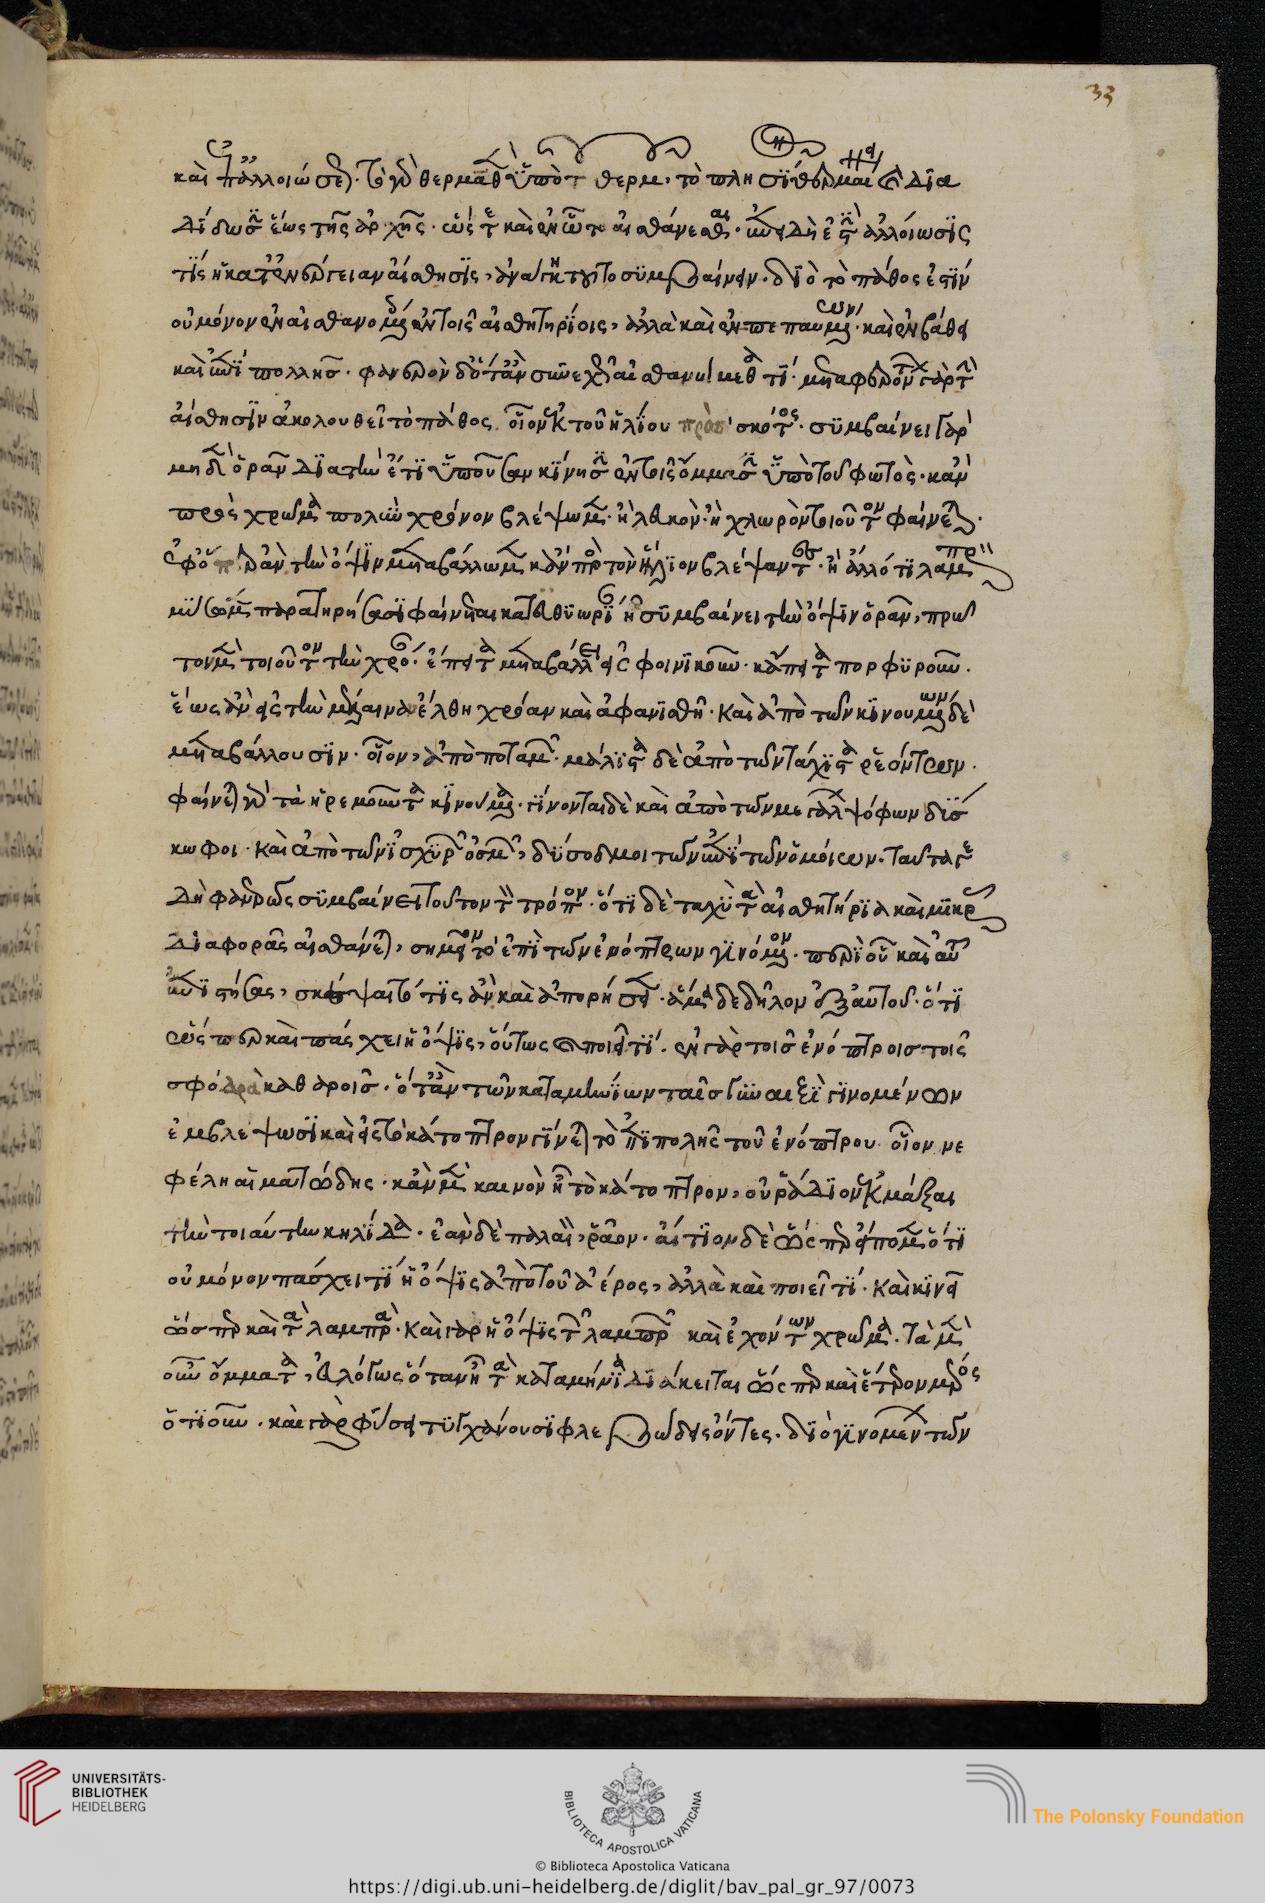 33
καὶ ἐπ' ἀλλοιώσεως. τό γὰρ θερμανθὲν ὑπὸ τοῦ θερμοῦ, τὸ πλησίον θερμαίνει καὶ δια
δίδωσιν ἕως τῆς ἀρχῆς. ὥστε καὶ ἐν ᾧ τὸ αἰσθάνεσθαι. ἐπειδή ἐστιν ἀλλοίωσις
τίς ἡ κατ' ἐνέργειαν αἴσθησις, ἀνάγκη τοῦτο συμβαίνειν. διὸ τὸ πάθος ἐστὶν
οὐ μόνον ἐν αἰσθανομένοις ἐν τοῖς αἰσθητηρίοις, ἀλλὰ καὶ ἐν πεπαυμένων. καὶ ἐν βάθει
καὶ ἐπιπολλῆς. φανερὸν δ' ὅταν συνεχῶς αἰσθανώμεθά τι. μεταφερόντων γὰρ τὴν
αἴσθησιν ἀκολουθεῖ τὸ πάθος. οἷον ἐκ τοῦ ἡλίου πρὸς σκότος. συμβαίνει γὰρ
μηδὲν ὁρᾶν διὰ τὴν ἔτι ὑποῦσαν κίνησιν ἐν τοῖς ὄμμασιν ὑπὸ τοῦ φωτὸς. κἂν
πρὸς χρῶμα πολὺν χρόνον βλέψωμεν. ἢ λευκὸν. ἢ χλωρὸν τοιοῦτον φαίνεται.
ἐφ' ὅπερ ἂν τὴν ὄψιν μεταβάλλωμεν κἂν πρὸς τὸν ἥλιον βλέψαντες. ἢ ἄλλό τι λαμπρὸν
μύσωμεν παρατηρήσασι φαίνεται κατ' εὐθυωρίαν ᾗ συμβαίνει τὴν ὄψιν ὁρᾶν, πρῶ
τον μὲν τοιοῦτον τὴν χρόαν. ἔπειτα μεταβάλλει εἰς φοινικοῦν. κἄπειτα πορφυροῦν.
ἕως ἂν εἰς τὴν μέλαιναν ἔλθῃ χρόαν καὶ ἀφανισθῇ. καὶ ἀπὸ τῶν κινουμένων δὲ
μεταβάλλουσιν. οἷον, ἀπὸ ποταμῶν. μάλιστα δὲ ἀπὸ τῶν τάχιστα ῥεόντων.
φαίνεται γὰρ τὰ ἠρεμοῦντα κινούμενα. γίνονται δὲ καὶ ἀπὸ τῶν μεγάλων ψόφων δύσ
κωφοι. καὶ ἀπὸ τῶν ἰσχυρῶν ὀσμῶν, δύσοδμοι τῶν ἐπὶ τῶν ὁμοίων. ταῦτά γε
δὴ φανερῶς συμβαίνει τοῦτον τὸν τρόπον. ὅτι δὲ ταχὺ τὰ αἰσθητήρια καὶ μικρᾶς
διαφορᾶς αἰσθάνεται, σημεῖον τὸ ἐπὶ τῶν ἐνόπτρων γινόμενον. περὶ οὗ καὶ αὐτοῦ
ἐπιστήσας, σκέψαιτό τις ἂν καὶ ἀπορήσειεν. ἅμα δὲ δῆλον ἐξ αὐτοῦ. ὅτι
ὥσπερ καὶ πάσχει ἡ ὄψις, οὕτως καὶ ποιεῖ τι. ἐν γὰρ τοῖς ἐνόπτροις τοῖς
σφόδρα καθαροῖς. ὅταν τῶν καταμηνίων ταῖς γυναιξὶ γινομένων
ἐμβλέψωσι καὶ εἰς τὸ κάτοπτρον γίνεται τὸ ἐπιπολῆς τοῦ ἐνόπτρου. οἷον νε
φέλη αἱματώδης. κἂν μὲν καινὸν ᾖ τὸ κάτοπτρον, οὐ ῥάδιον ἐκμάξαι
τὴν τοιαύτην κηλῖδα. ἐὰν δὲ παλαιὸν, ῥᾷον. αἴτιον δὲ ὥσπερ εἴπομεν ὅτι
οὐ μόνον πάσχει τι ἡ ὄψις ἀπὸ τοῦ ἀέρος, ἀλλὰ καὶ ποιεῖ τι. καὶ κινεῖ
ὥσπερ καὶ τὰ λαμπρὰ. καὶ γὰρ ἡ ὄψις τῶν λαμπρῶν καὶ ἐχόντων χρῶμα. τὰ μὲν
οὖν ὄμματα, εὐλόγως ὅταν ᾖ τὰ καταμήνια διάκειται ὥσπερ καὶ ἕτερον μέρος
ὁτιοῦν. καὶ γὰρ φύσει τυγχάνουσι φλεβώδεις ὄντες. διὸ γινομένων τῶν
UNIVERSITÄTS-
BIBLIOTHEK
HEIDELBERG
BIBLIOTECA APOSTOLICA VATICANA
The Polonsky Foundation
© Biblioteca Apostolica Vaticana
https://digi.ub.uni-heidelberg.de/diglit/bav_pal_gr_97/0073